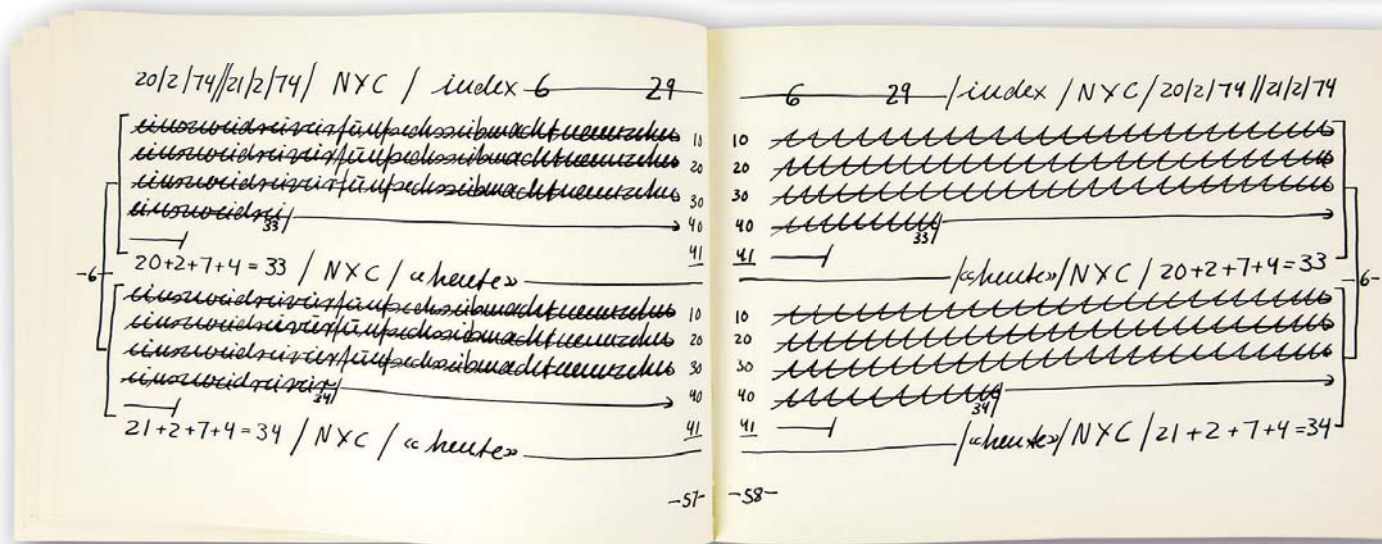 20/2/74//21/2/74/ NYC / index 6 29
einszweidreivierfünfsechssiebenachtneunzehn 10
einszweidreivierfünfsechssiebenachtneunzehn 20
einszweidreivierfünfsechssiebenachtneunzehn 30
einszweidrei/ 33 40
41
20+2+7+4=33 / NYC / «heute»
-6-
einszweidreivierfünfsechssiebenachtneunzehn 10
einszweidreivierfünfsechssiebenachtneunzehn 20
einszweidreivierfünfsechssiebenachtneunzehn 30
einszweidreivier/ 34 40
41
21+2+7+4=34 / NYC / «heute»
-57-
6 29 /index/NYC/20/2/74//21/2/74
10
20
30
40 33/
41
/«heute»/NYC/20+2+7+4=33
-6-
10
20
30
40 34/
41
/«heute»/NYC/21+2+7+4=34
-58-